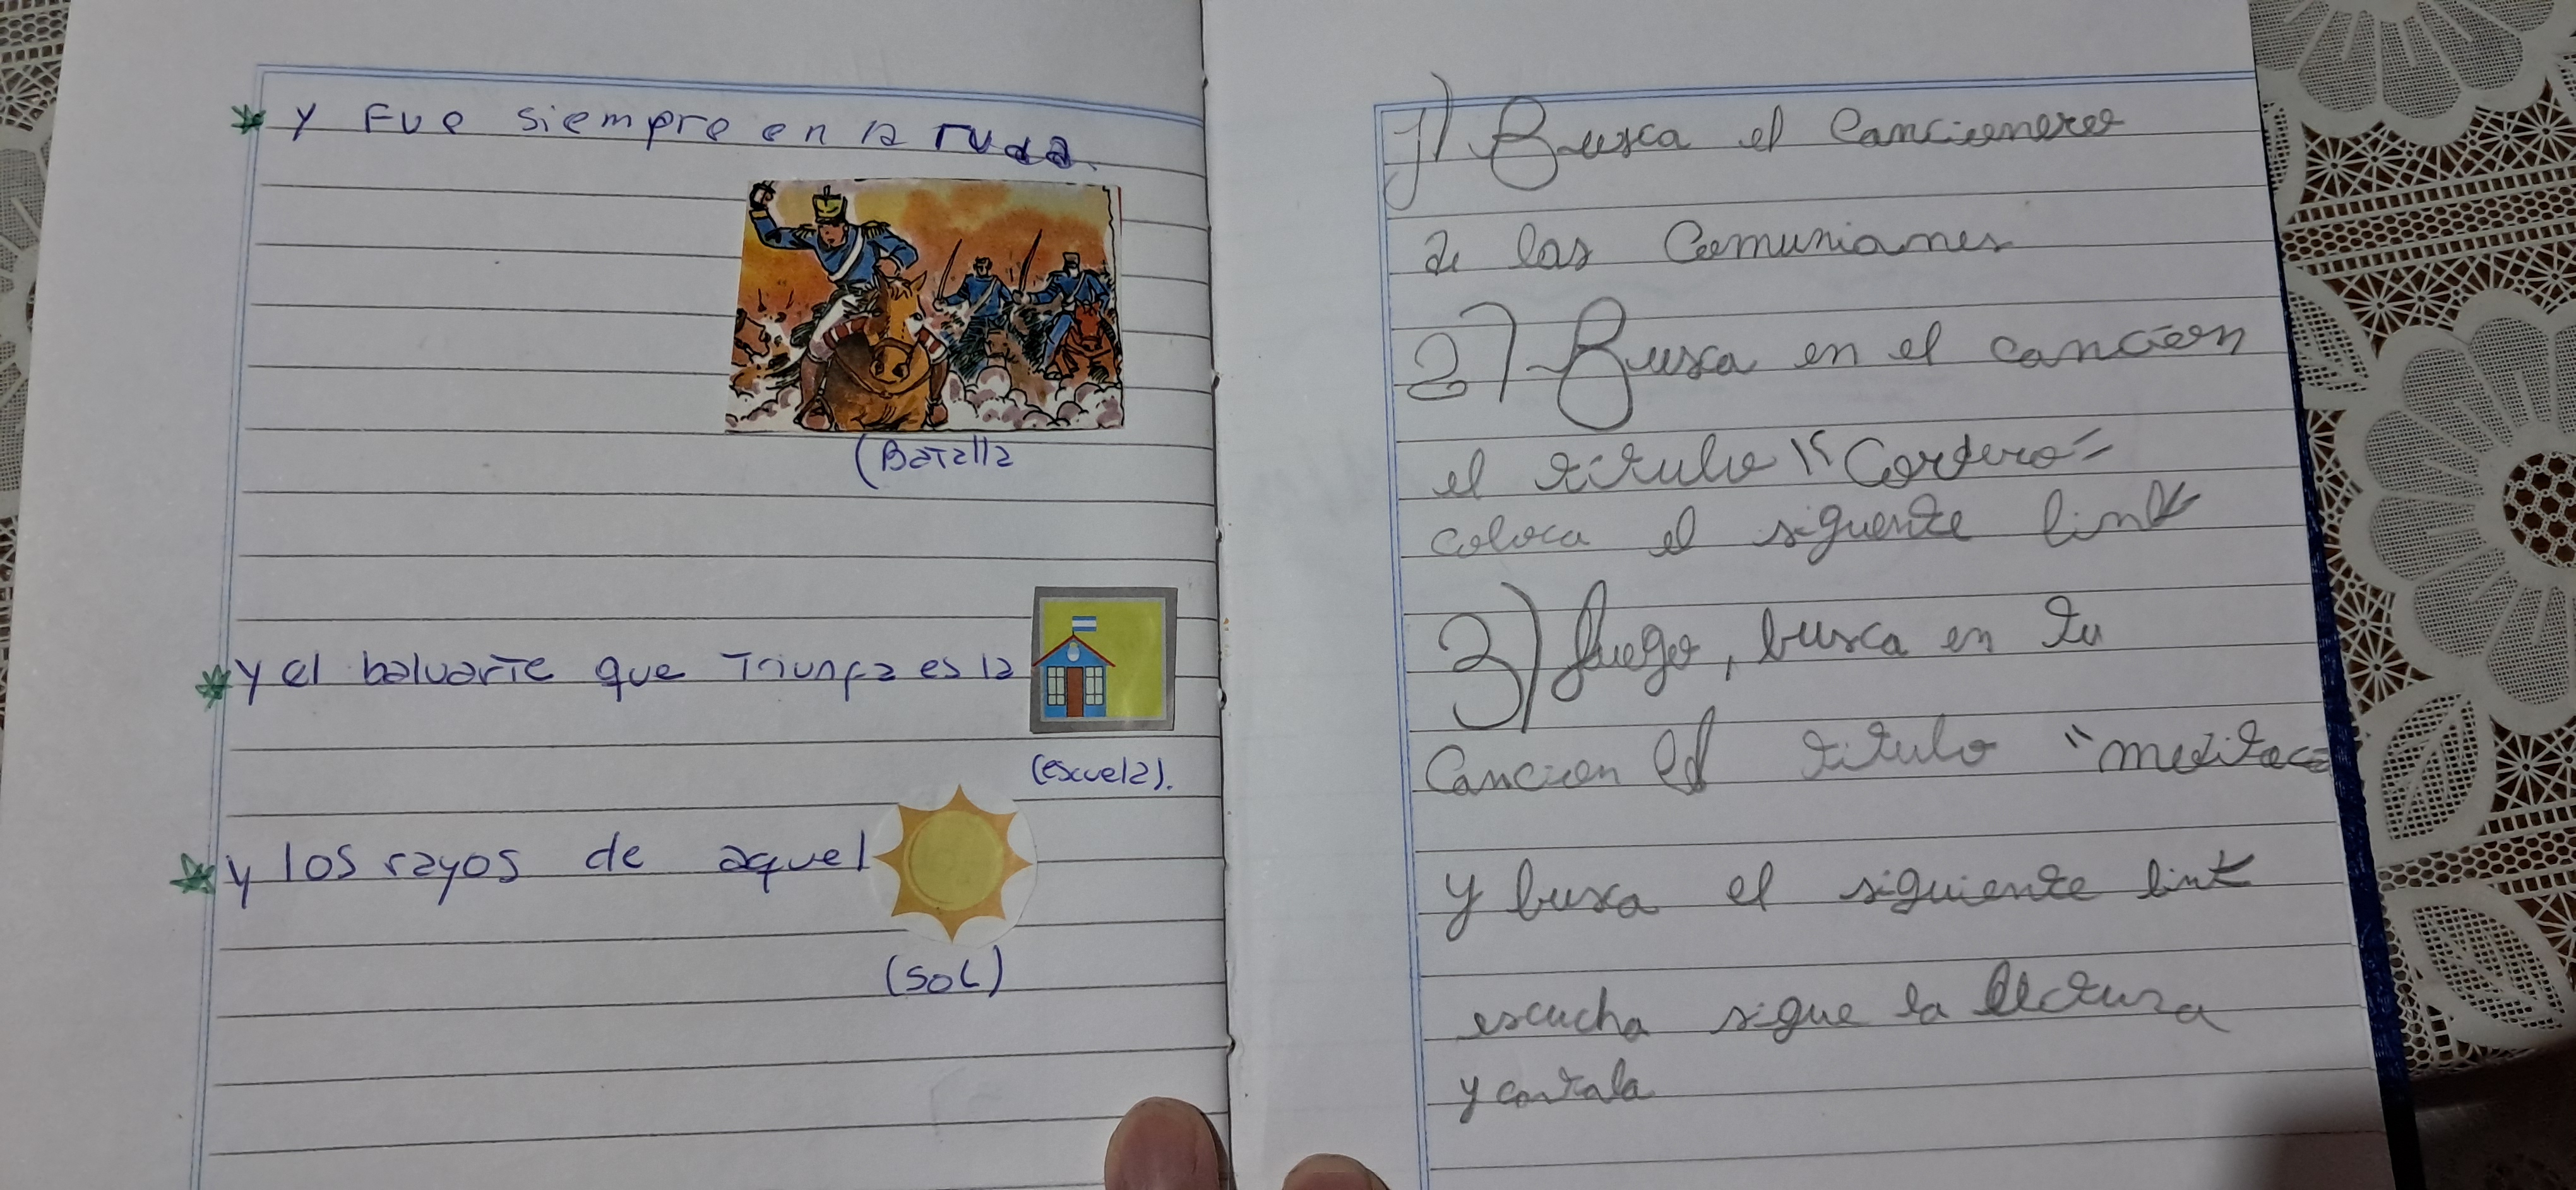 y fue siempre en la ruda.
(Batalla
y el baluarte que Triunfa es la
(escuela).
y los rayos de aquel
(SOL)
1) Busca el Cancionero
de las Comuniones
2) Busca en el cancion
el titulo "Cordero"
coloca el siguente link
3) Luego, busca en tu
Cancion el titulo "meditac
y busca el siguiente link
escucha sigue la lectura
y contala